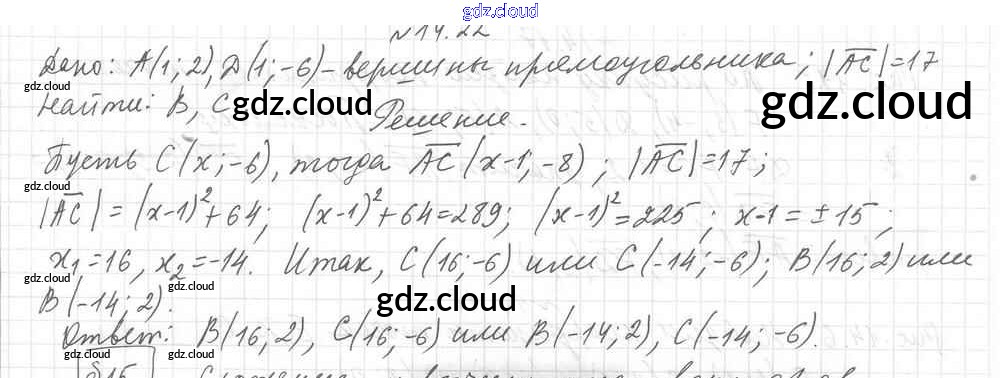 gdz.cloud
№14.22
Дано: A(1;2), D(1;-6) - вершины прямоугольника; |AC|=17
gdz.cloud
Найти: B, C gdz.cloud gdz.cloud
Решение.
Пусть C(x;-6), тогда AC(x-1;-8); |AC|=17;
gdz.cloud
|AC| = (x-1)²+64; (x-1)²+64=289; (x-1)²=225; x-1=±15;
x₁=16, x₂=-14. Итак, C(16;-6) или C(-14;-6); B(16;2) или
gdz.cloud gdz.cloud
B(-14;2). gdz.cloud
Ответ: B(16;2), C(16;-6) или B(-14;2), C(-14;-6).
gdz.cloud gdz.cloud
§15